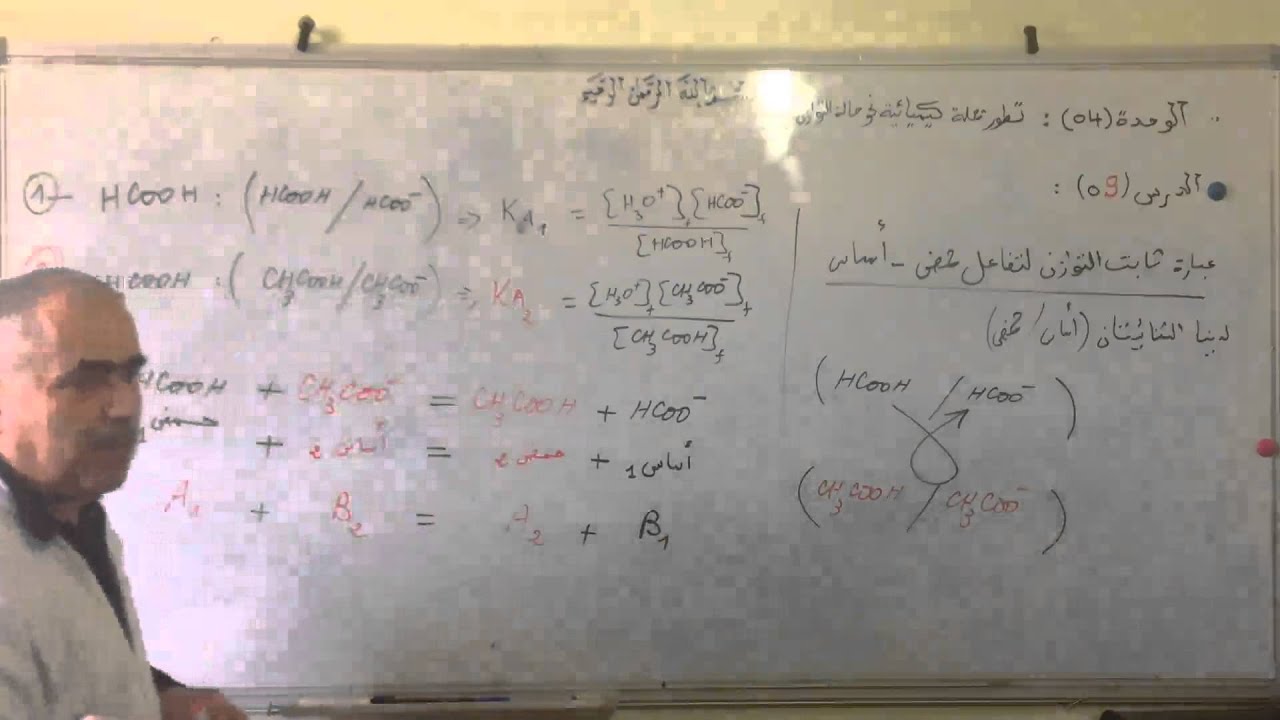 بسم الله الرحمن الرحيم
الوحدة (04) : تطور جملة كيميائية نحو حالة التوازن
الدرس (09) :
عبارة ثابت التوازن لتفاعل حمض - أساس
لدينا الثنائيتان (أساس / حمض)
(HCOOH / HCOO⁻)
(CH₃COOH / CH₃COO⁻)
①- HCOOH : (HCOOH / HCOO⁻) => K_A₁ = [H₃O⁺]_f [HCOO⁻]_f / [HCOOH]_f
COOH : (CH₃COOH / CH₃COO⁻) => K_A₂ = [H₃O⁺]_f [CH₃COO⁻]_f / [CH₃COOH]_f
HCOOH + CH₃COO⁻ = CH₃COOH + HCOO⁻
حمض 1 + أساس 2 = حمض 2 + أساس 1
A₁ + B₂ = A₂ + B₁